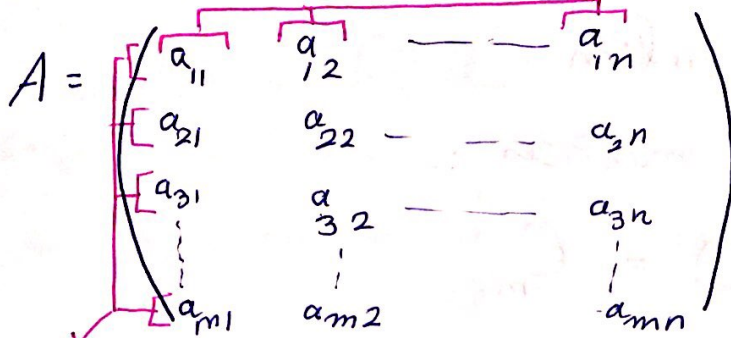 A = ( a₁₁ a₁₂ — — a₁ₙ
a₂₁ a₂₂ - — — a₂ₙ
a₃₁ a₃₂ — — a₃ₙ
aₘ₁ aₘ₂ aₘₙ )